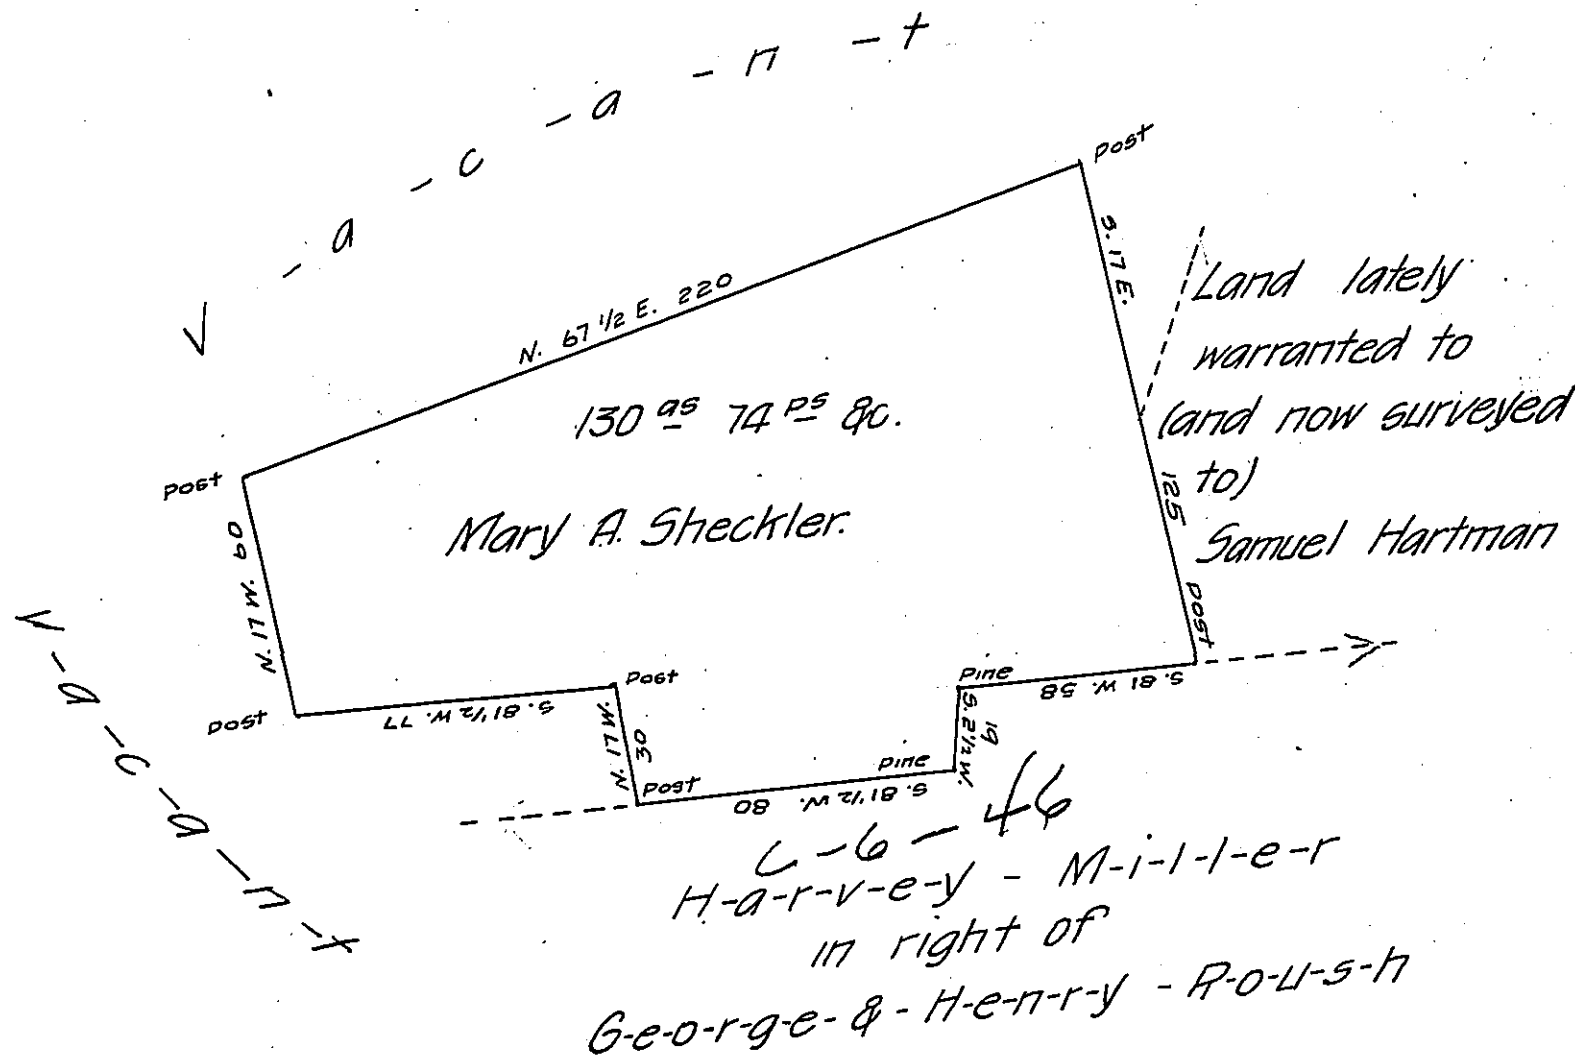 v - a - c - a - n - t
Post
N. 67 1/2 E. 220
S. 17 E.
125
Post
Land lately
warranted to
(and now surveyed
to)
Samuel Hartman
130 as 74 ps &c.
Mary A. Sheckler.
Post
N. 17 W. 60
Post
S. 81 1/2 W. 77
Post
N. 17 W.
30
Post
S. 81 1/2 W. 80
Pine
S. 2 1/2 W.
19
Pine
S. 81 W. 58
V-a-c-a-n-t
C-6-46
H-a-r-v-e-y - M-i-l-l-e-r
in right of
G-e-o-r-g-e- & - H-e-n-r-y - R-o-u-s-h